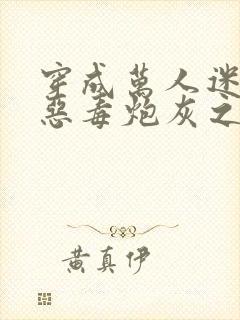 穿成萬人迷
惡毒炮灰之
黃真伊